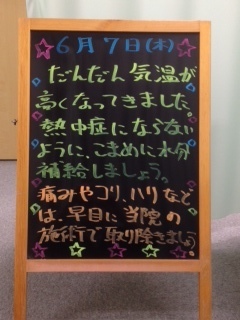 6月7日(木)
だんだん気温が
高くなってきました。
熱中症にならない
ように、こまめに水分
補給しましょう。
痛みやコリ、ハリなど
は、早目に当院の
施術で取り除きましょう。